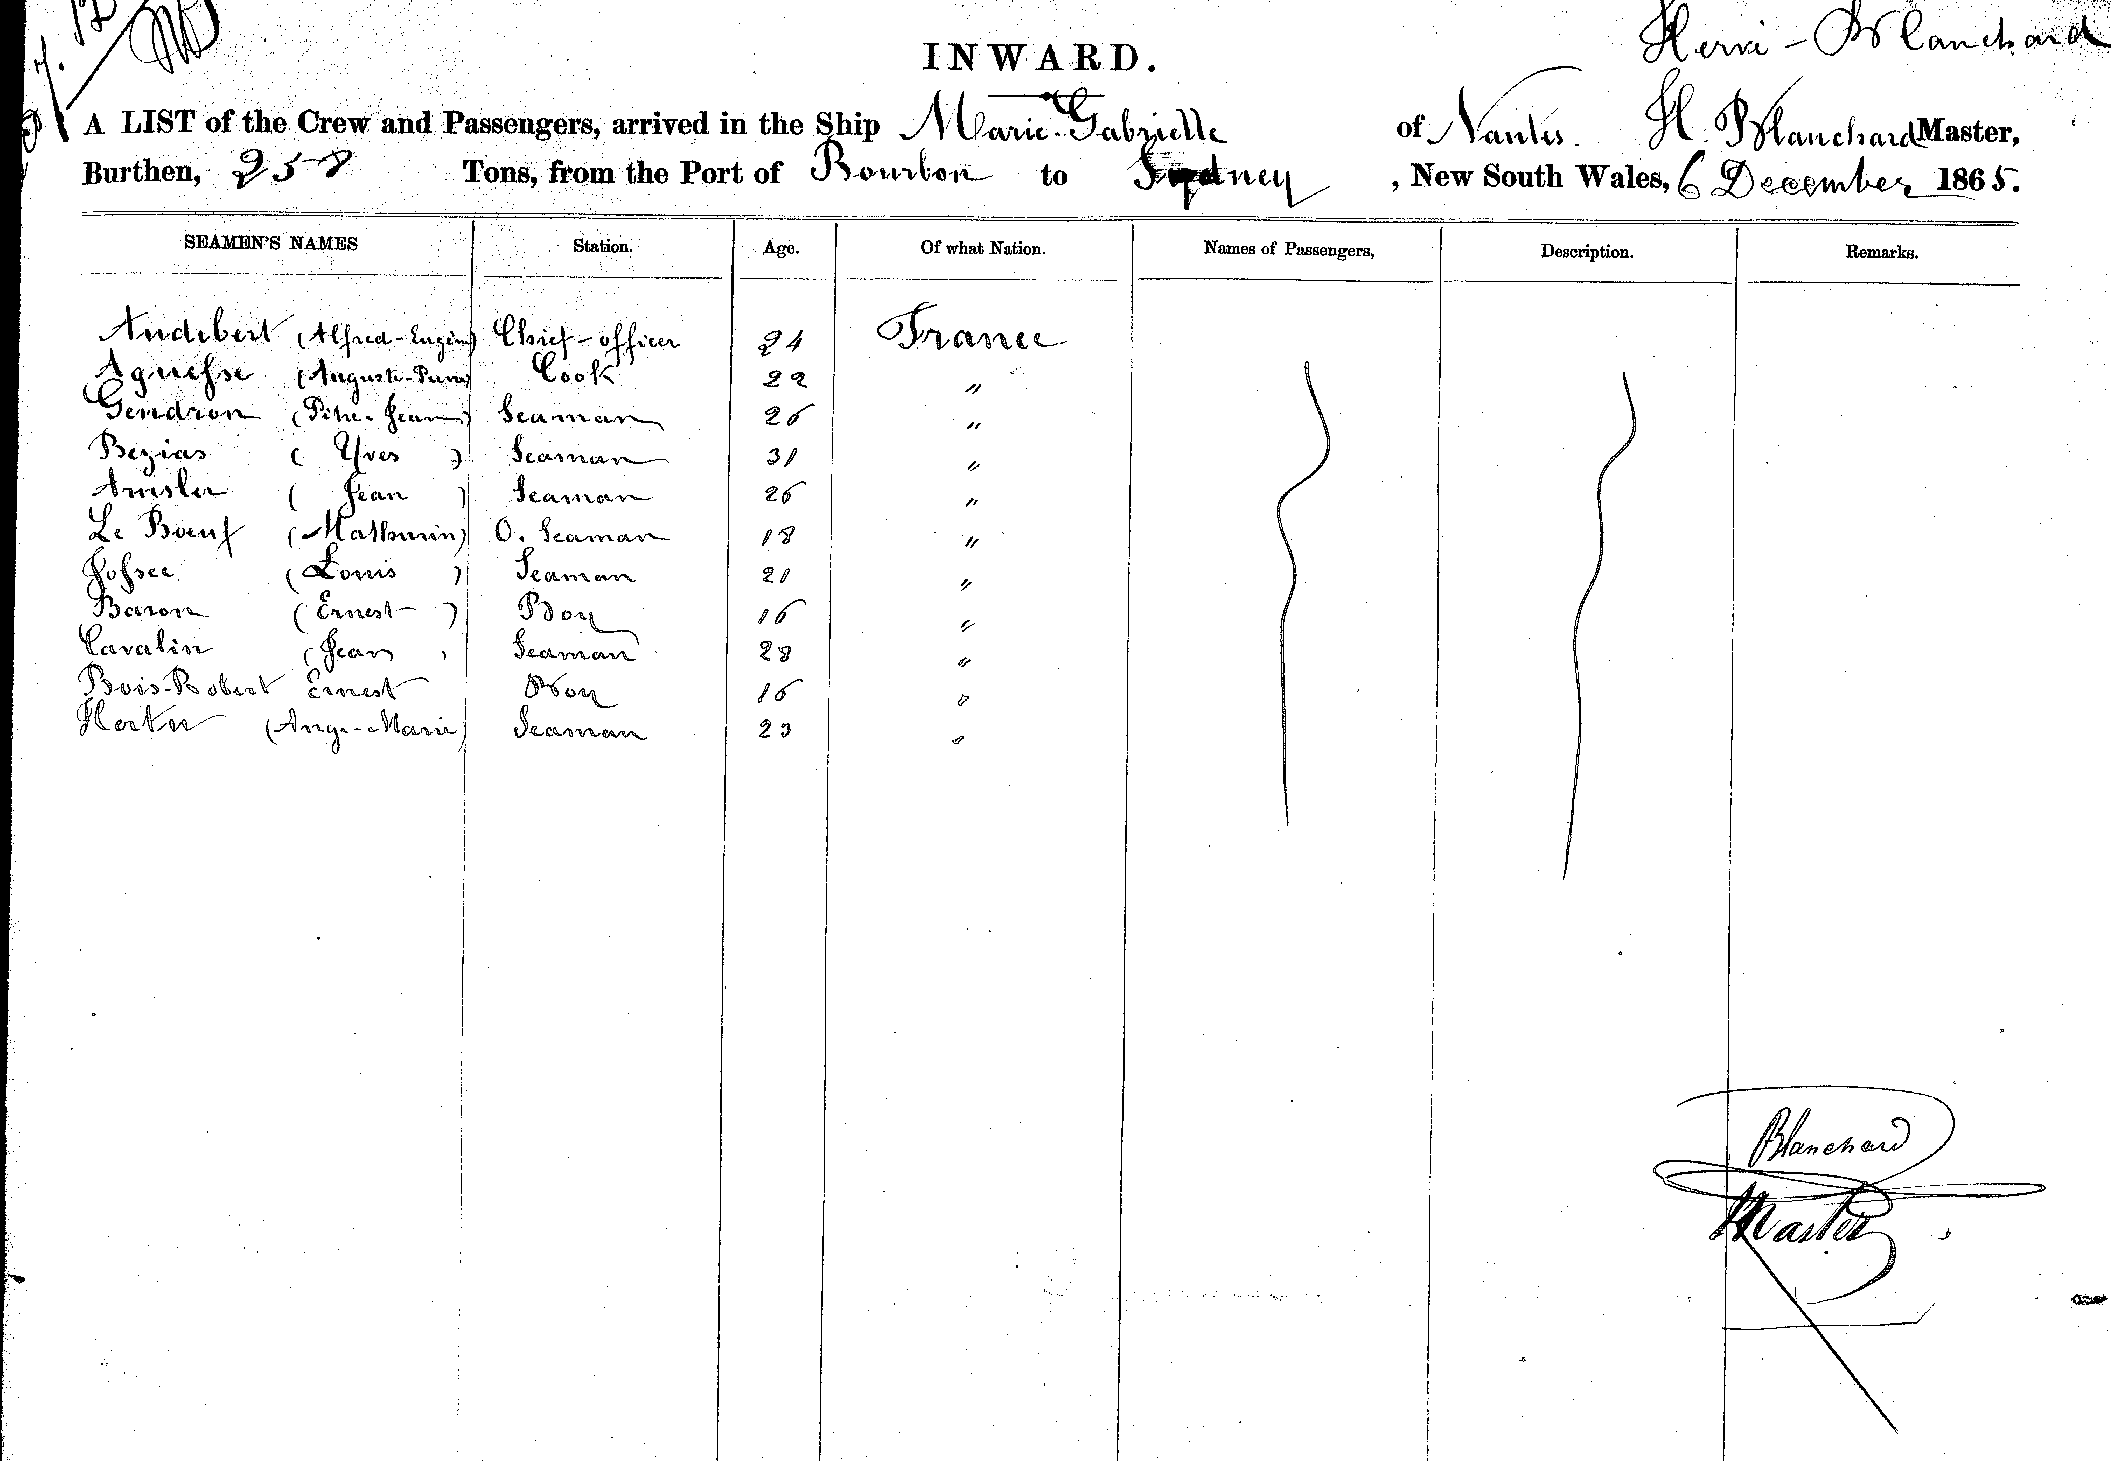 INWARD.
Hervé - Blanchard
A LIST of the Crew and Passengers, arrived in the Ship Marie-Gabrielle of Nantes. H. Blanchard Master,
Burthen, 258 Tons, from the Port of Bourbon to Sydney, New South Wales, 6 December 1865.
SEAMEN'S NAMES Station. Age. Of what Nation. Names of Passengers, Description. Remarks.
Audibert (Alfred-Eugène) Chief-officer 24 France
Aguesse (Auguste-Pierre) Cook 22 "
Gendron (Jean) Seaman 26 "
Bezias (Yves) Seaman 31 "
Amsler (Jean) Seaman 26 "
Le Bœuf (Mathurin) O. Seaman 18 "
Jossee (Louis) Seaman 21 "
Baron (Ernest) Boy 16 "
Cavalin (Jean) Seaman 28 "
Bois-Robert Ernest Boy 16 "
(Ange-Marie) Seaman 23 "
Blanchard
Master